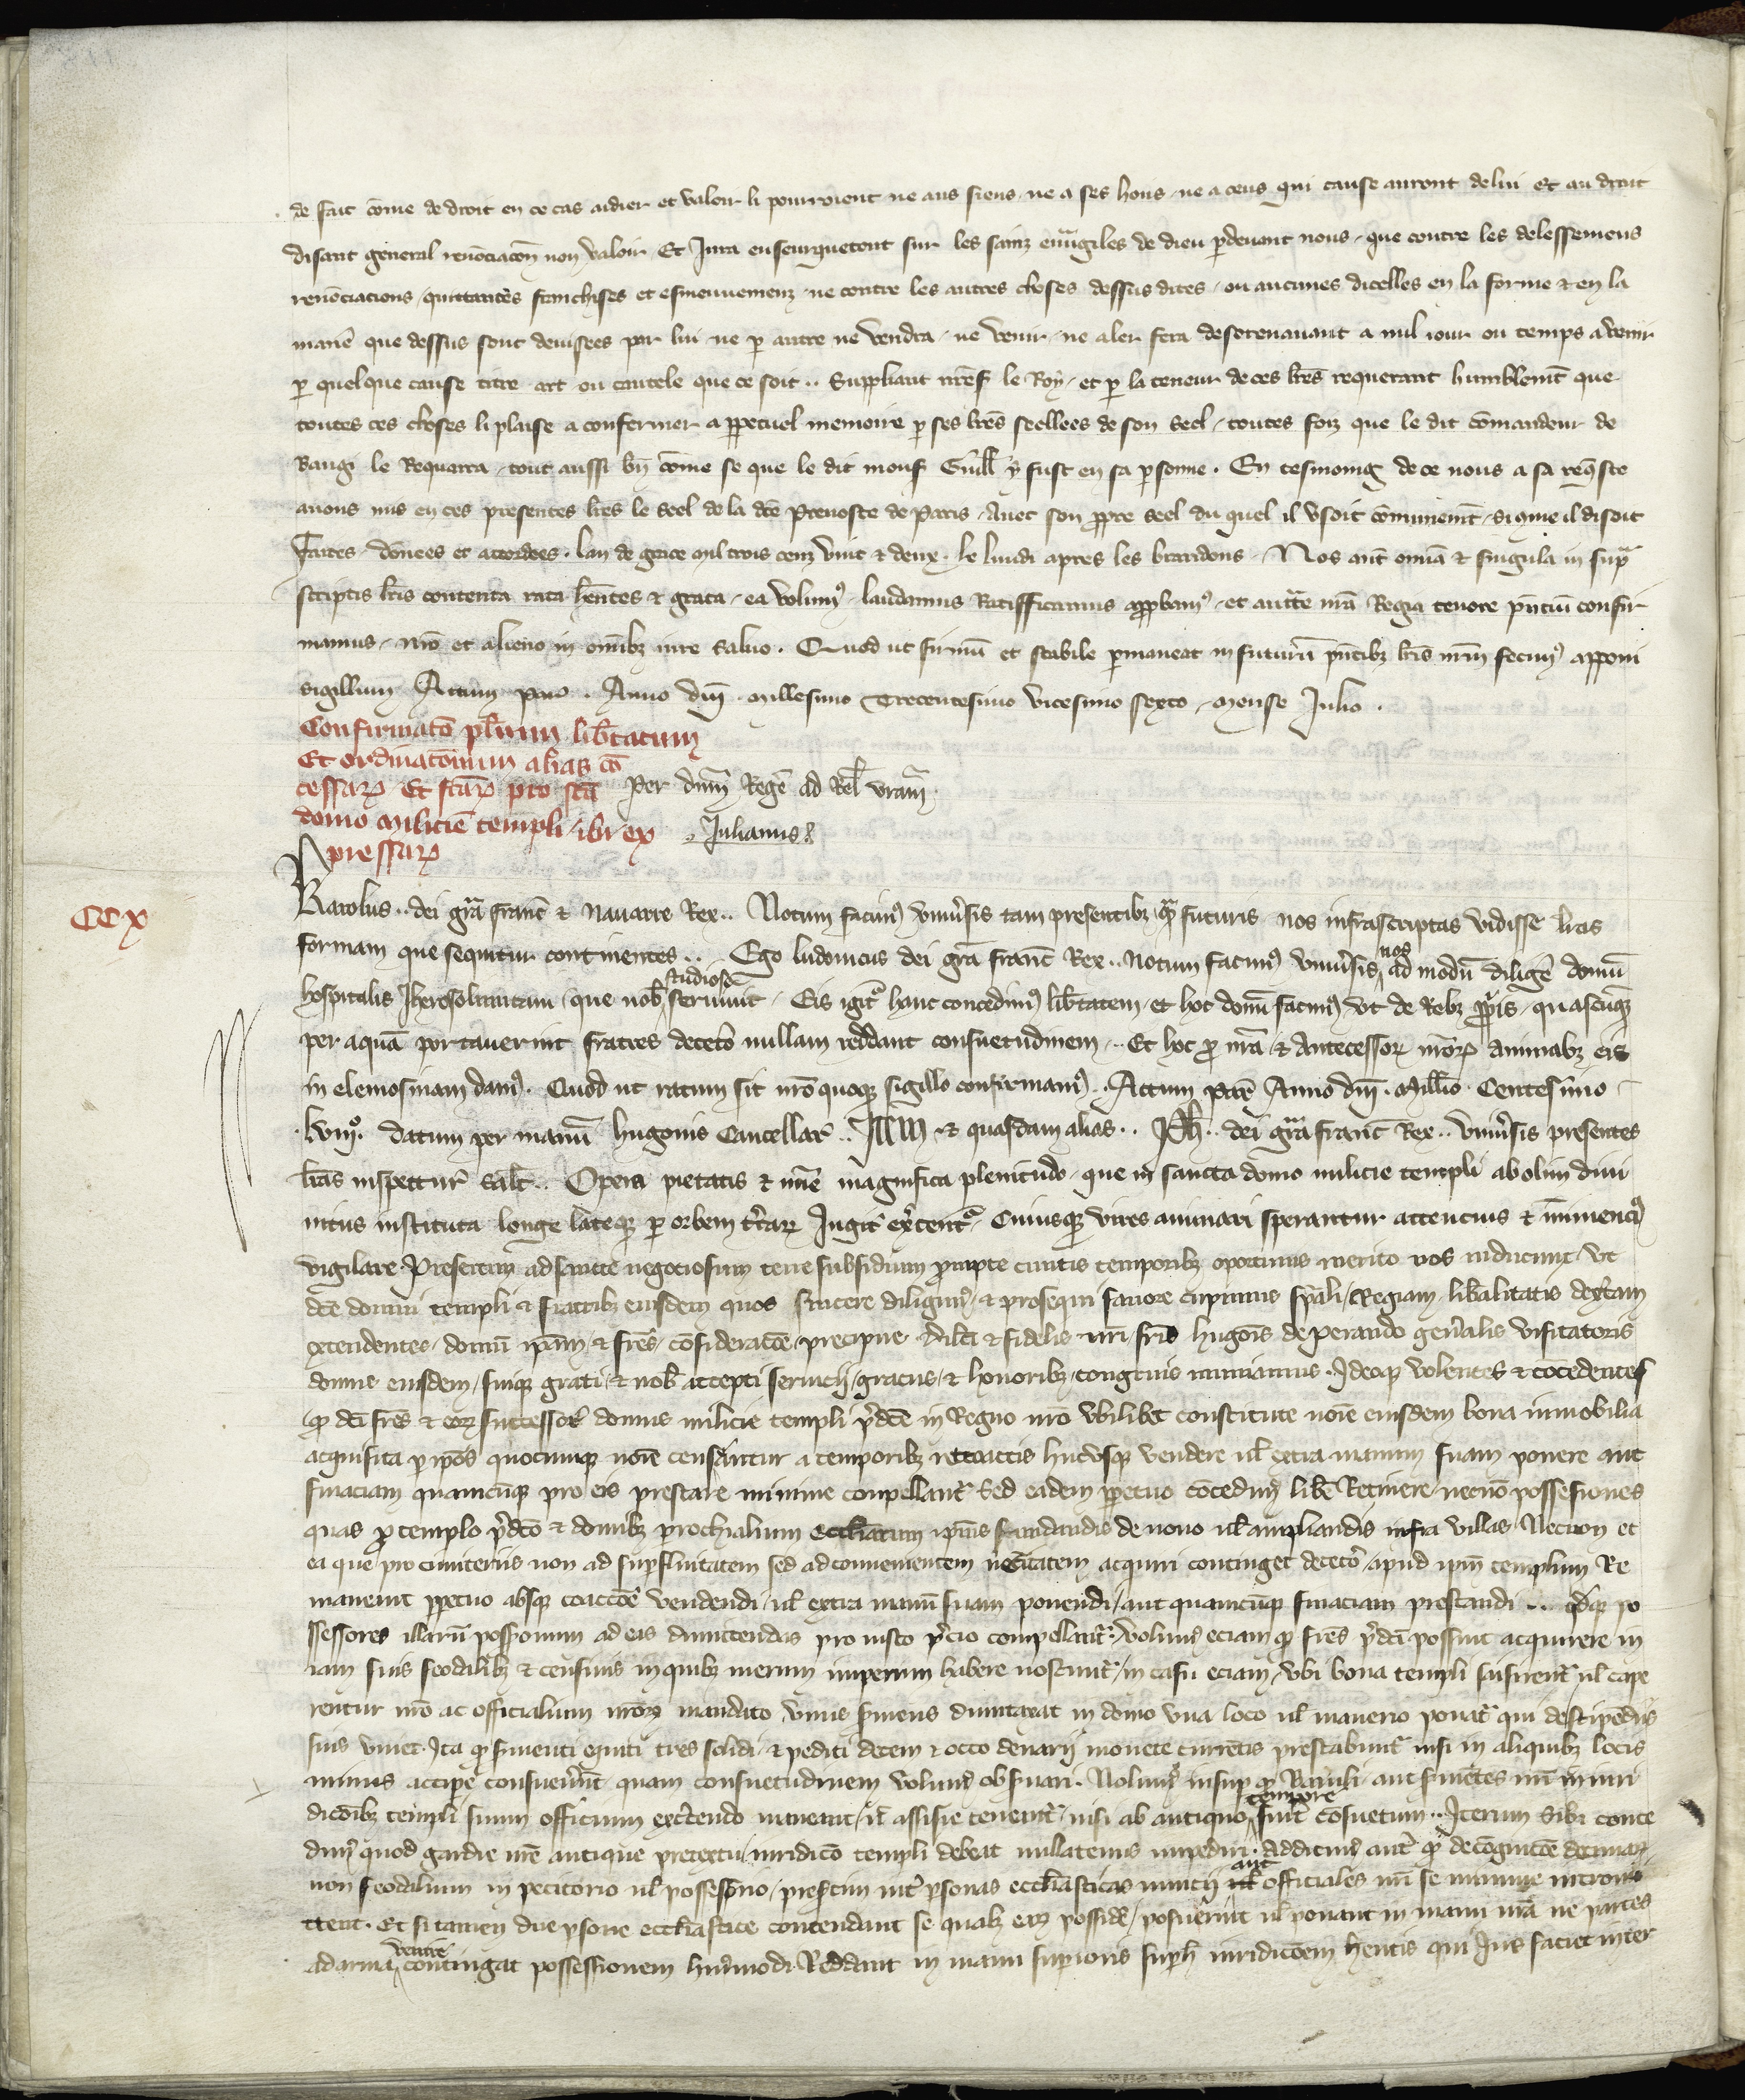 de fait cōme de droit en ce cas aidier et valoir li pourroient ne aus siens ne a ses hoirs ne a ceus qui cause auront de lui Et au droit
disant general renōciacōn non valoir Et Jura enseurquetout sur les sainz euvāgiles de dieu p̄devant nous que contre les delessemens
renōciacions quittances franchises et esmeuvemenz ne contre les autres choses dessus dites ou aucunes dicelles en la forme & en la
maniē que dessus sont devisees par lui ne p autre ne vendra ne venir ne aler fera desorenavant a nul iour ou temps avenir
p quelque cause titre art ou cautele que ce soit .. Suppliant nr̄es le Roy et p la teneur de ces lr̄es requerant humblemt̄ que
toutes ces choses li plaise a confermer a ppetuel memoire p ses lr̄es seellees de son seel toutes foiz que le dit cōmandeur de
Baugi le Requerra tout aussi bn̄ cōme se que le dit mons Guill̄ y fust en sa psonne . En tesmoing de ce nous a sa req̄ste
avons mis en ces presentes lr̄es le seel de la dc̄e Prevoste de Paris Avec son ppre seel du quel il usoit cōmunemt̄ sicōme il disoit
Faites dōnees et accordees . lan de grace mil trois cenz vint & deux . le lundi apres les brandons . Nos aut̄ om̄ia & singula in sup̄ra
scriptis lr̄is contenta rata hen̄tes & grata ea volum⁹ laudamus Ratifficamus appbam⁹ et auctt̄e nr̄a Regia tenore pn̄ciū confir
mamus nr̄o et alieno in om̄ibz iure salvo . Quod ut firmū et stabile pmaneat in futurū pn̄tibz lr̄is nr̄m fecim⁹ apponi
sigillum Actum Par̄ . Anno dn̄i millesimo Trecentesimo vicesimo sexto mense Julio .
Confirmatō pl̄rium lib̄tatum
Et ordinatōnum alias cō
cessar̄ Et sc̄ar̄ pro scā
domo milicie templi ibi ex
pressar̄
Per dn̄m Regē ad Rel̄ vram̄
Julianus
CCX
Karolus .. dei grā franc̄ & Navarre Rex .. Notum facim⁹ univ̄sis tam presentibz q̄m futuris nos infrascriptas vidisse lr̄as
formam que sequitur continentes .. Ego ludovicus dei grā franc̄ Rex .. Notum facim⁹ univ̄sis nos ad modū diligē domū
hospitalis Jherosolimitani que nob̄ studiose serviunt Eis igit̄ hanc concedim⁹ lib̄tatem et hoc donū facim⁹ ut de Rebz ppiis quascūqz
per aquā portaverint fratres decet̄o nullam reddant consuetudinem .. Et hoc p nr̄a & Antecessor nr̄or̄ animabz eis
in elemosinam dam⁹ . Quod ut ratum sit nr̄o quoqz sigillo confirmam⁹ . Actum Par̄ Anno dn̄i . Mill̄io . Centesimo
lviiī⁰ . datum per manū hugonis Cancellar̄ .. Itē & quasdam alias .. Ph̄ .. dei grā franc̄ Rex .. univ̄sis presentes
lr̄as inspectur̄ salt̄ .. Opera pietatis & mīe magnifica plenitudo que in sancta domo milicie templi ab olim divi
nitus instituta longe lateqz p orbem t̄rar Jugit̄ ex̄cent̄ Cuiusqz vires animari sperantur attencius & imminenci⁹
vigilare Presertim ad s̄cte negociosum terre subsidium prompte cunctis temporibz oportunis merito nos inducunt ut
dc̄e domui templi & fratribz eiusdem quos sincere diligim⁹ & prosequi favore cupimus sp̄ali Regiam lib̄alitatis dext̄am
extendentes domū ip̄am & fr̄es cōsideracōe precipue dilc̄i & fidelis nr̄i fr̄is hugōis de perando gen̄alis visitatoris
domus eiusdem suiqz grati & nob̄ accepti servicii graciis & honoribz congruis muniamus . Ideoqz volentes & cōcedentes
q̄ dc̄i fr̄es & eor successor̄ domus milicie templi p̄dc̄e in Regno nr̄o ubilibet constitute noīe eiusdem bona inmobilia
acquisita p ip̄os quocumqz noīe censeantur a temporibz retroactis hucusqz vendere ul̄ extra manum suam ponere aut
financiam quamcūqz pro eis prestare minime conpellant̄ Sed eadem ppetuo cōcedim⁹ lib̄e Retinere necnō possessiones
quas p templo p̄dc̄o & domibz prochialium eccl̄iarum ip̄ius fundandis de novo ul̄ ampliandis infra villas Necnon et
ea que pro cimiteriis non ad sup̄fluitatem sed ad convenientem nec̄itatem acquiri continget decet̄o apud ip̄m templum Re
maneant ppetuo absqz coactōe vendendi ul̄ extra manū suam ponendi aut quamcūqz financiam prestandi .. qdqz po
ssessores illarū possionum ad eas dimittendas pro iusto p̄cio compellant̄ . volum⁹ eciam q̄ fr̄es p̄dc̄i possint acquirere in
iam suis feodalibz & censivis in quibz merum imperium habere noscunt̄ in casu eciam ubi bona templi saisirent̄ ul̄ cape
rentur nr̄o ac officialium nr̄or̄ mandato unus s̄viens dumtaxat in domo una loco ul̄ manerio ponat̄ qui de stipēdiis
suis vivet . Ita q̄ s̄vienti equiti tres solidi & pediti decem & octo denarii monete currētis prestabunt̄ nisi in aliquibz locis
minus accipe consuev̄int quam consuetudinem volum⁹ obs̄vari . Nolum⁹ insup q̄ Baiuli aut s̄vientes nr̄i in iuri
dicōibz templi suum officium exc̄endo maneant ul̄ assisie teneant̄ nisi ab antiquo tempore fuit cōsuetum .. Iterum Sibi conce
dim⁹ quod gardie nr̄e antique pretextu iuridicō templi debeat nullatenus impediri . Addicim⁹ aut̄ q̄ de cōgnicōe decimar
non feodalium in petitorio ul̄ possessorio presertim int̄ p̄sonas eccl̄iasticas nuncii aut officiales nr̄i se minime intromi
ttent . Et si tamen due p̄sone eccl̄iastice contendant se qualz ear possidē posuerint ul̄ ponant in manu nr̄a ne partes
ad arma venire contingat possessionem hui⁹modi Reddant in manu sup̄ioris sup̄ iuridicōem hentis qui Jus faciet inter